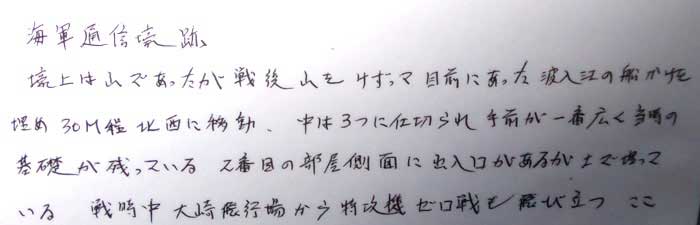 海軍通信壕跡
壕上は山であったが戦後山をけずって目前にあった波入江の船かげを
埋め30M程北西に移動、中は3つに仕切られ手前が一番広く当時の
基礎が残っている 2番目の部屋側面に出入口があるが土で埋って
いる 戦時中大崎飛行場から特攻機ゼロ戦も飛び立つ ここ